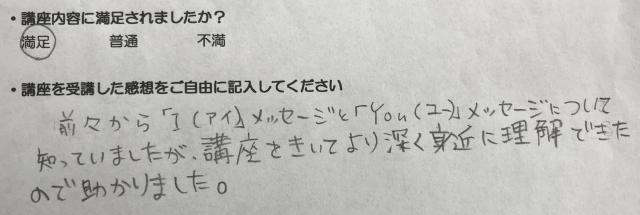 ・講座内容に満足されましたか？
満足 普通 不満
・講座を受講した感想をご自由に記入してください
前々から「I（アイ）」メッセージと「You（ユー）」メッセージについて
知っていましたが、講座をきいてより深く身近に理解できた
ので助かりました。